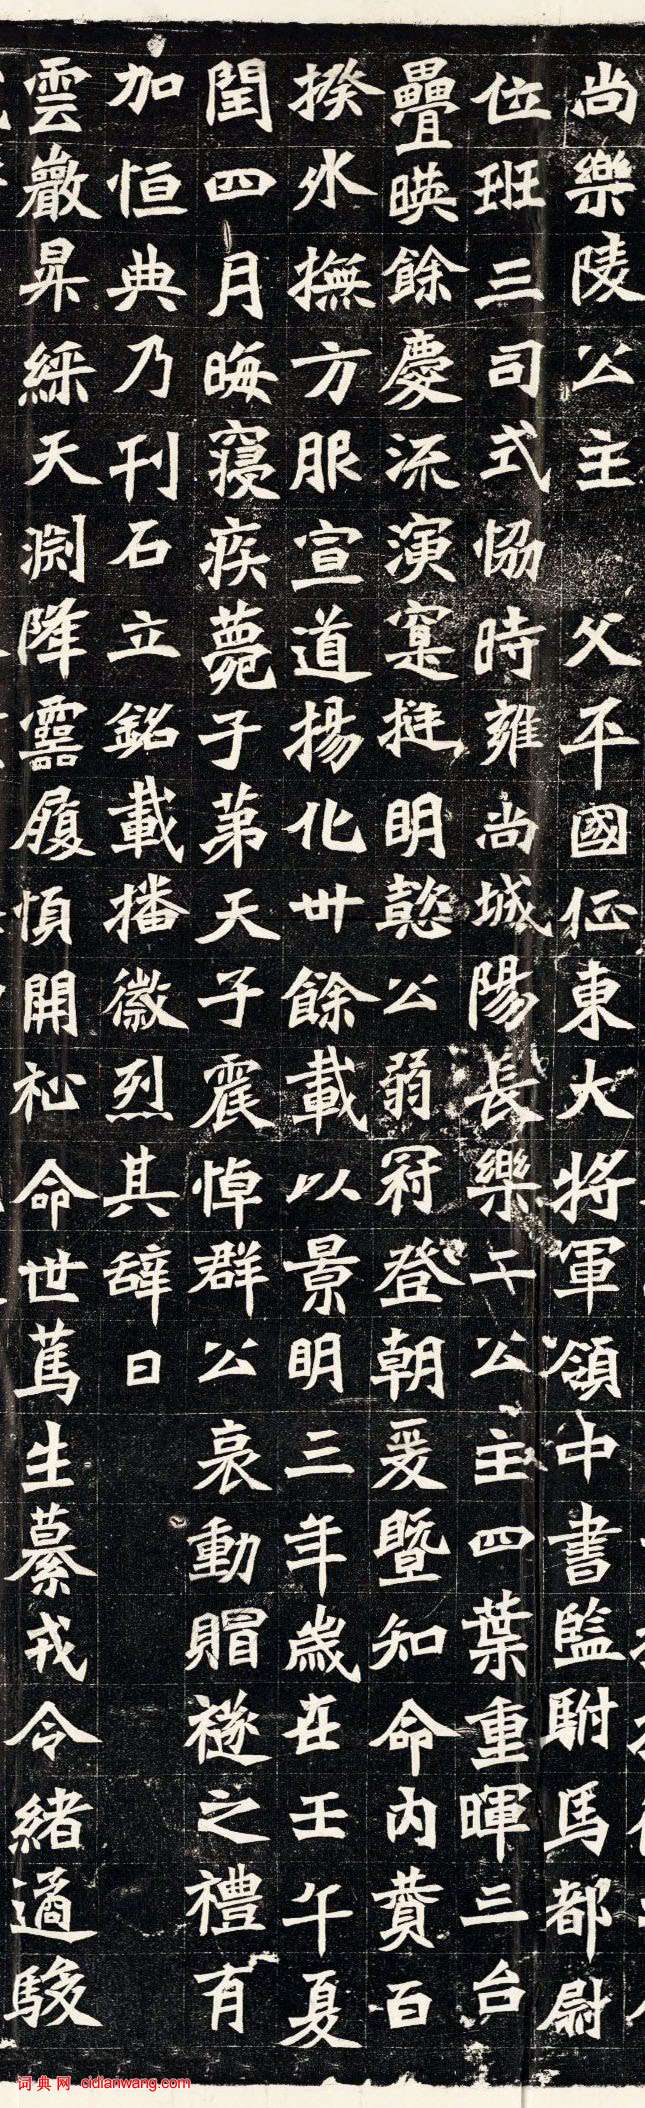 尚樂陵公主 父平國征東大將軍領中書監駙馬都尉
位班三司式協時雍尚城陽長樂二公主四葉重暉三台
疊暎餘慶流演寔挺明懿公弱冠登朝爰暨知命內贊百
揆外撫方服宣道揚化卅餘載以景明三年歲在壬午夏
閏四月晦寢疾薨于第天子震悼群公哀動賵襚之禮有
加恒典乃刊石立銘載播徽烈其辞曰
雲巖昇綵天淵降靈履順開祉命世篤生纂戎令緒遹駿
词典网 cidianwang.com